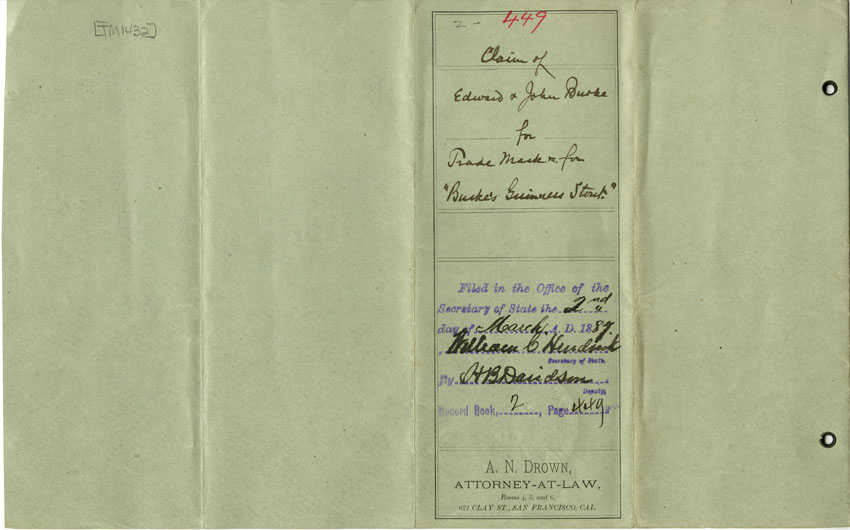 [TM1432]
2 - 449
Claim of
Edward & John Burke
for
Trade Mark &c. for
"Burke's Guinness Stout."
Filed in the Office of the
Secretary of State the 2nd
day of March A. D. 1887.
William C Hendricks
Secretary of State.
By H B Davidson
Deputy.
Record Book, 2, Page 449
A. N. DROWN,
ATTORNEY-AT-LAW,
Rooms 4, 5, and 6,
621 CLAY ST., SAN FRANCISCO, CAL.